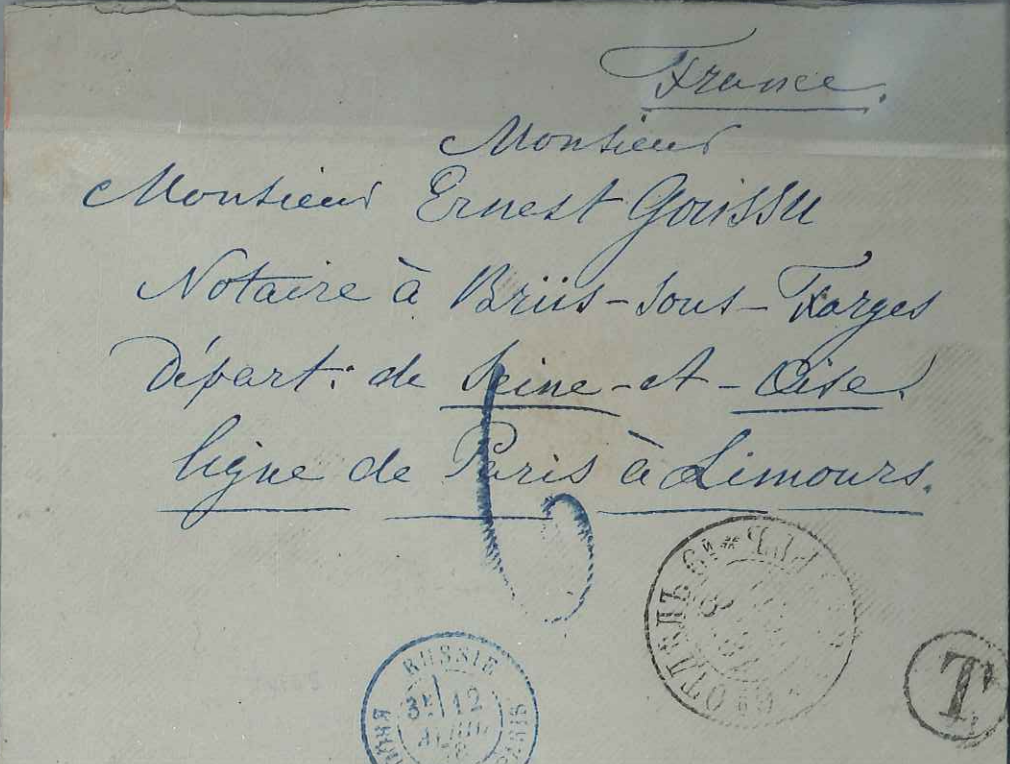 France.
Monsieur
Monsieur Ernest Goussu
Notaire à Briis-sous-Forges
Départ: de Seine-et-Oise.
ligne de Paris à Limours.
6
ОТДѢЛЪ
RUSSIE
3E 12
AVRIL
PARIS
T